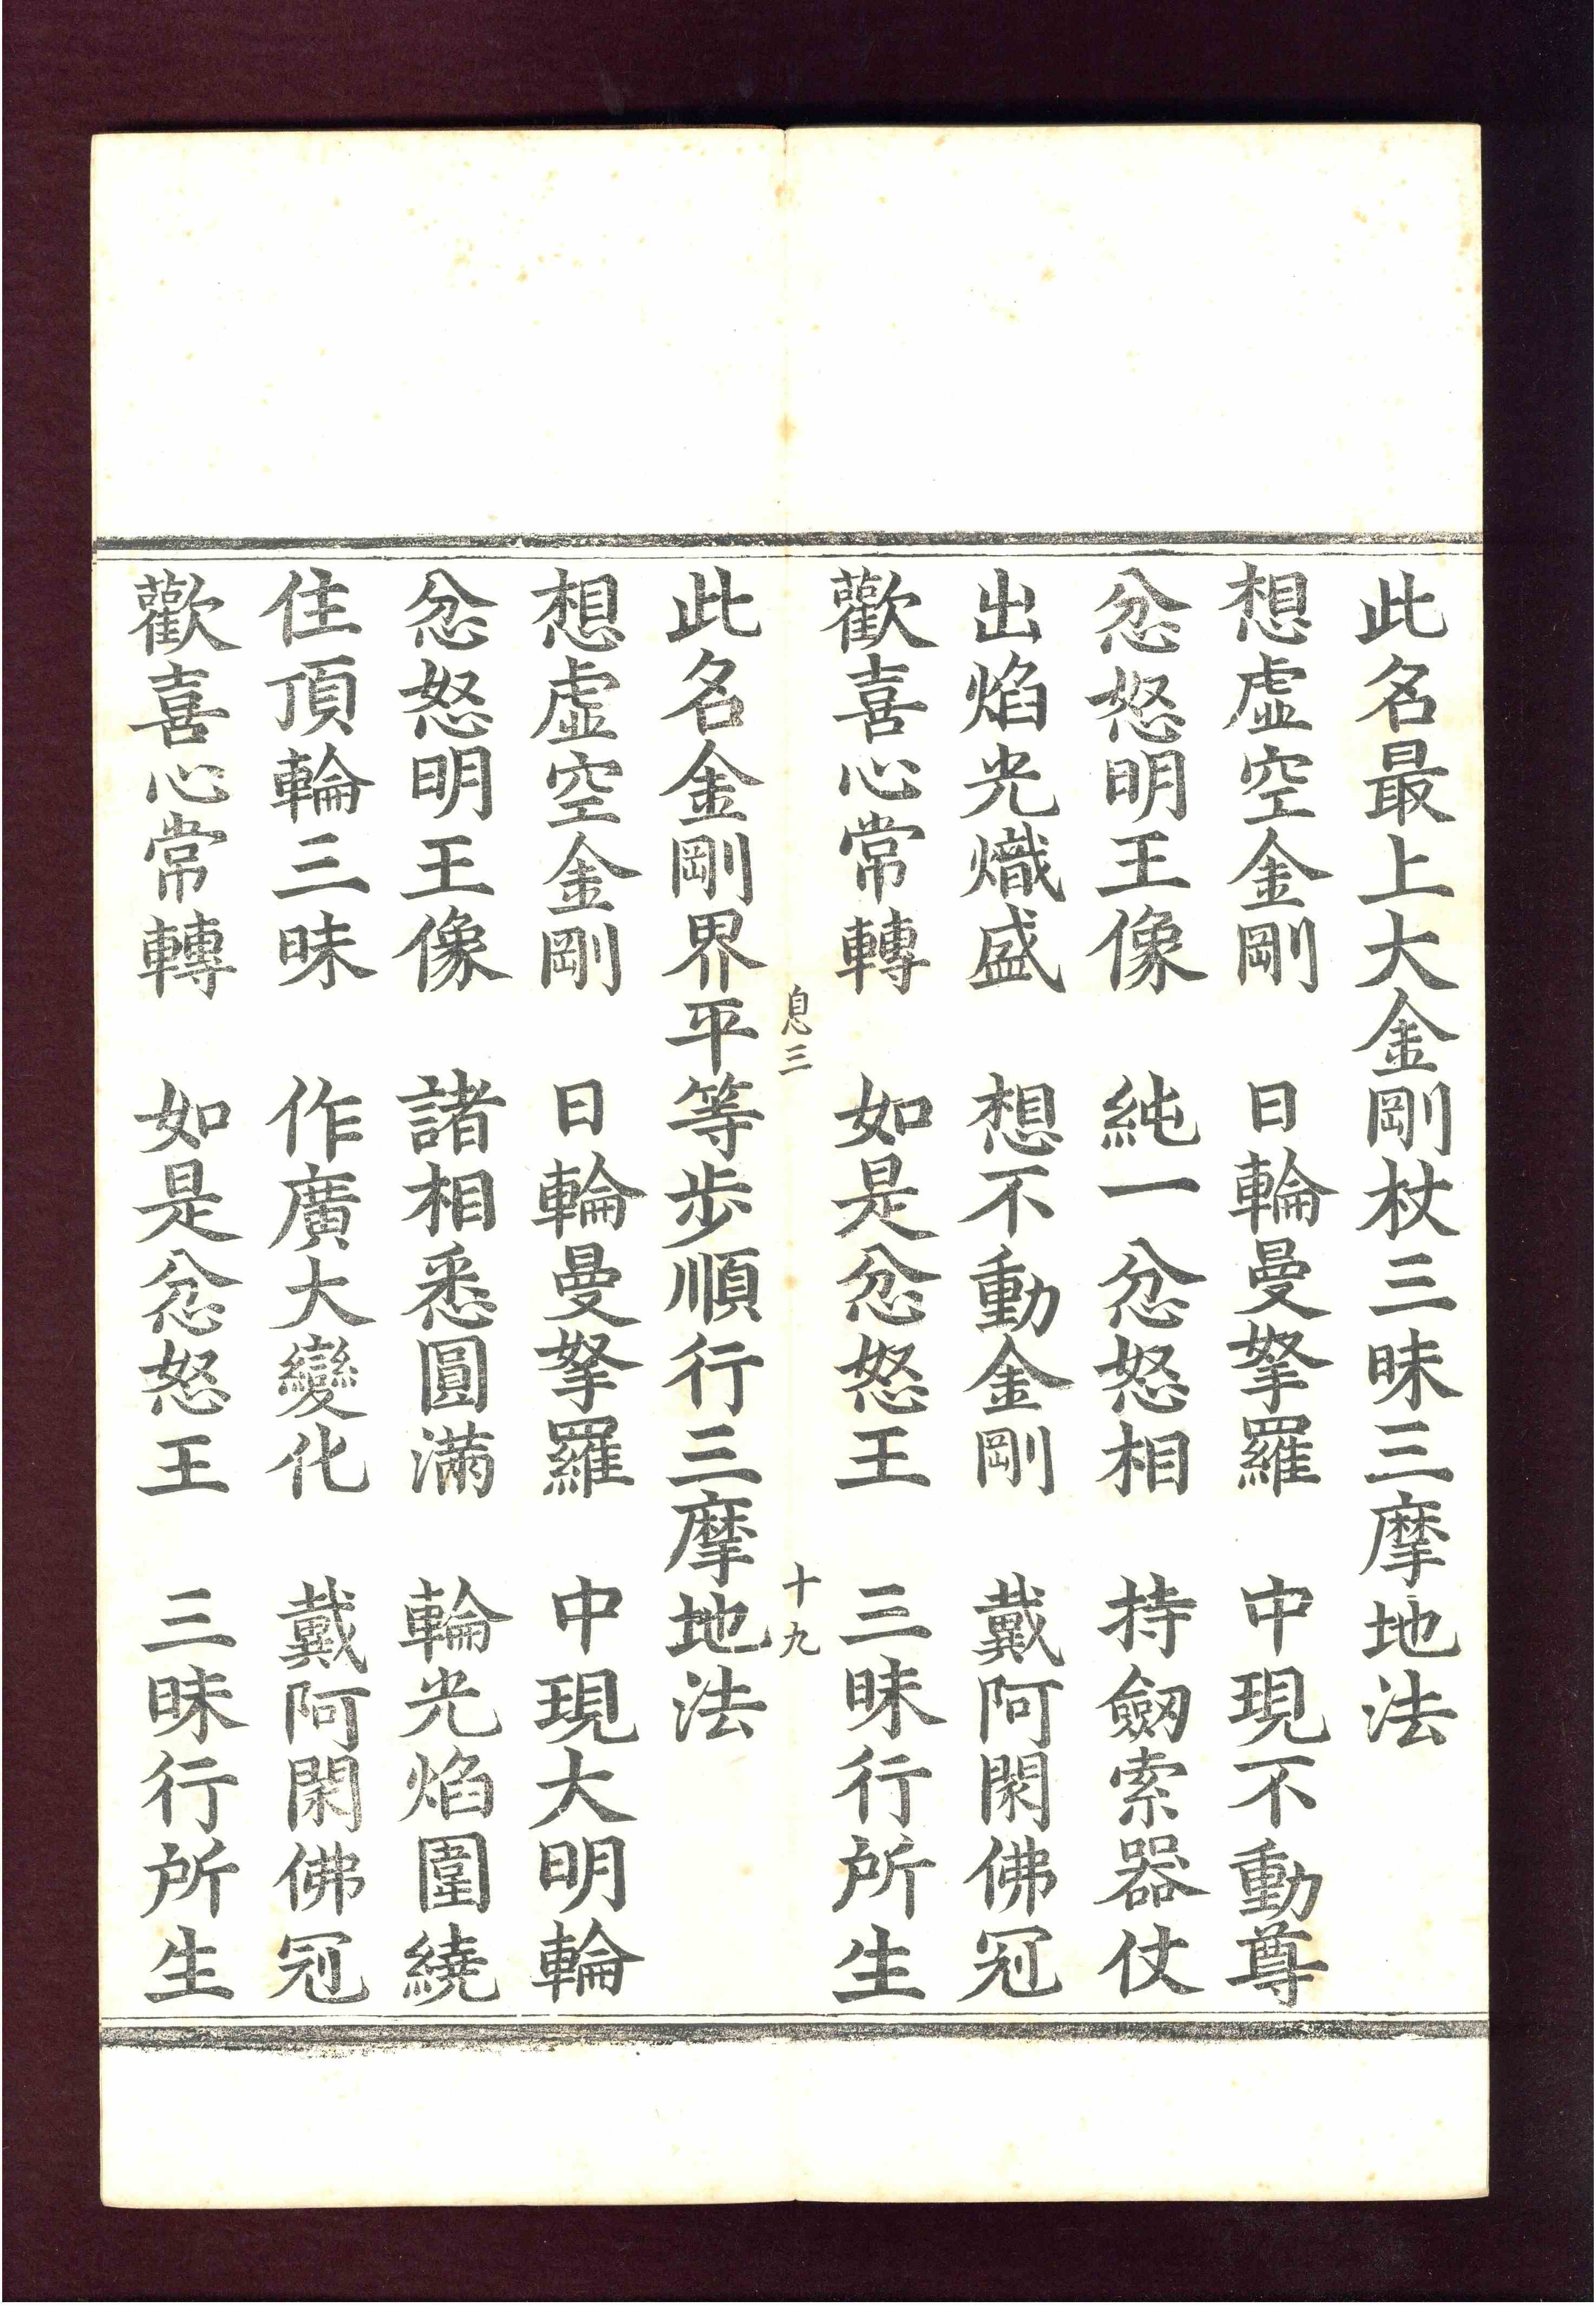 此名最上大金剛杖三昧三摩地法
想虛空金剛　日輪曼拏羅　中現不動尊
忿怒明王像　純一忿怒相　持劒索器仗
出焰光熾盛　想不動金剛　戴阿閦佛冠
歡喜心常轉　如是忿怒王　三昧行所生
息三　十九
此名金剛界平等步順行三摩地法
想虛空金剛　日輪曼拏羅　中現大明輪
忿怒明王像　諸相悉圓滿　輪光焰圍繞
住頂輪三昧　作廣大變化　戴阿閦佛冠
歡喜心常轉　如是忿怒王　三昧行所生